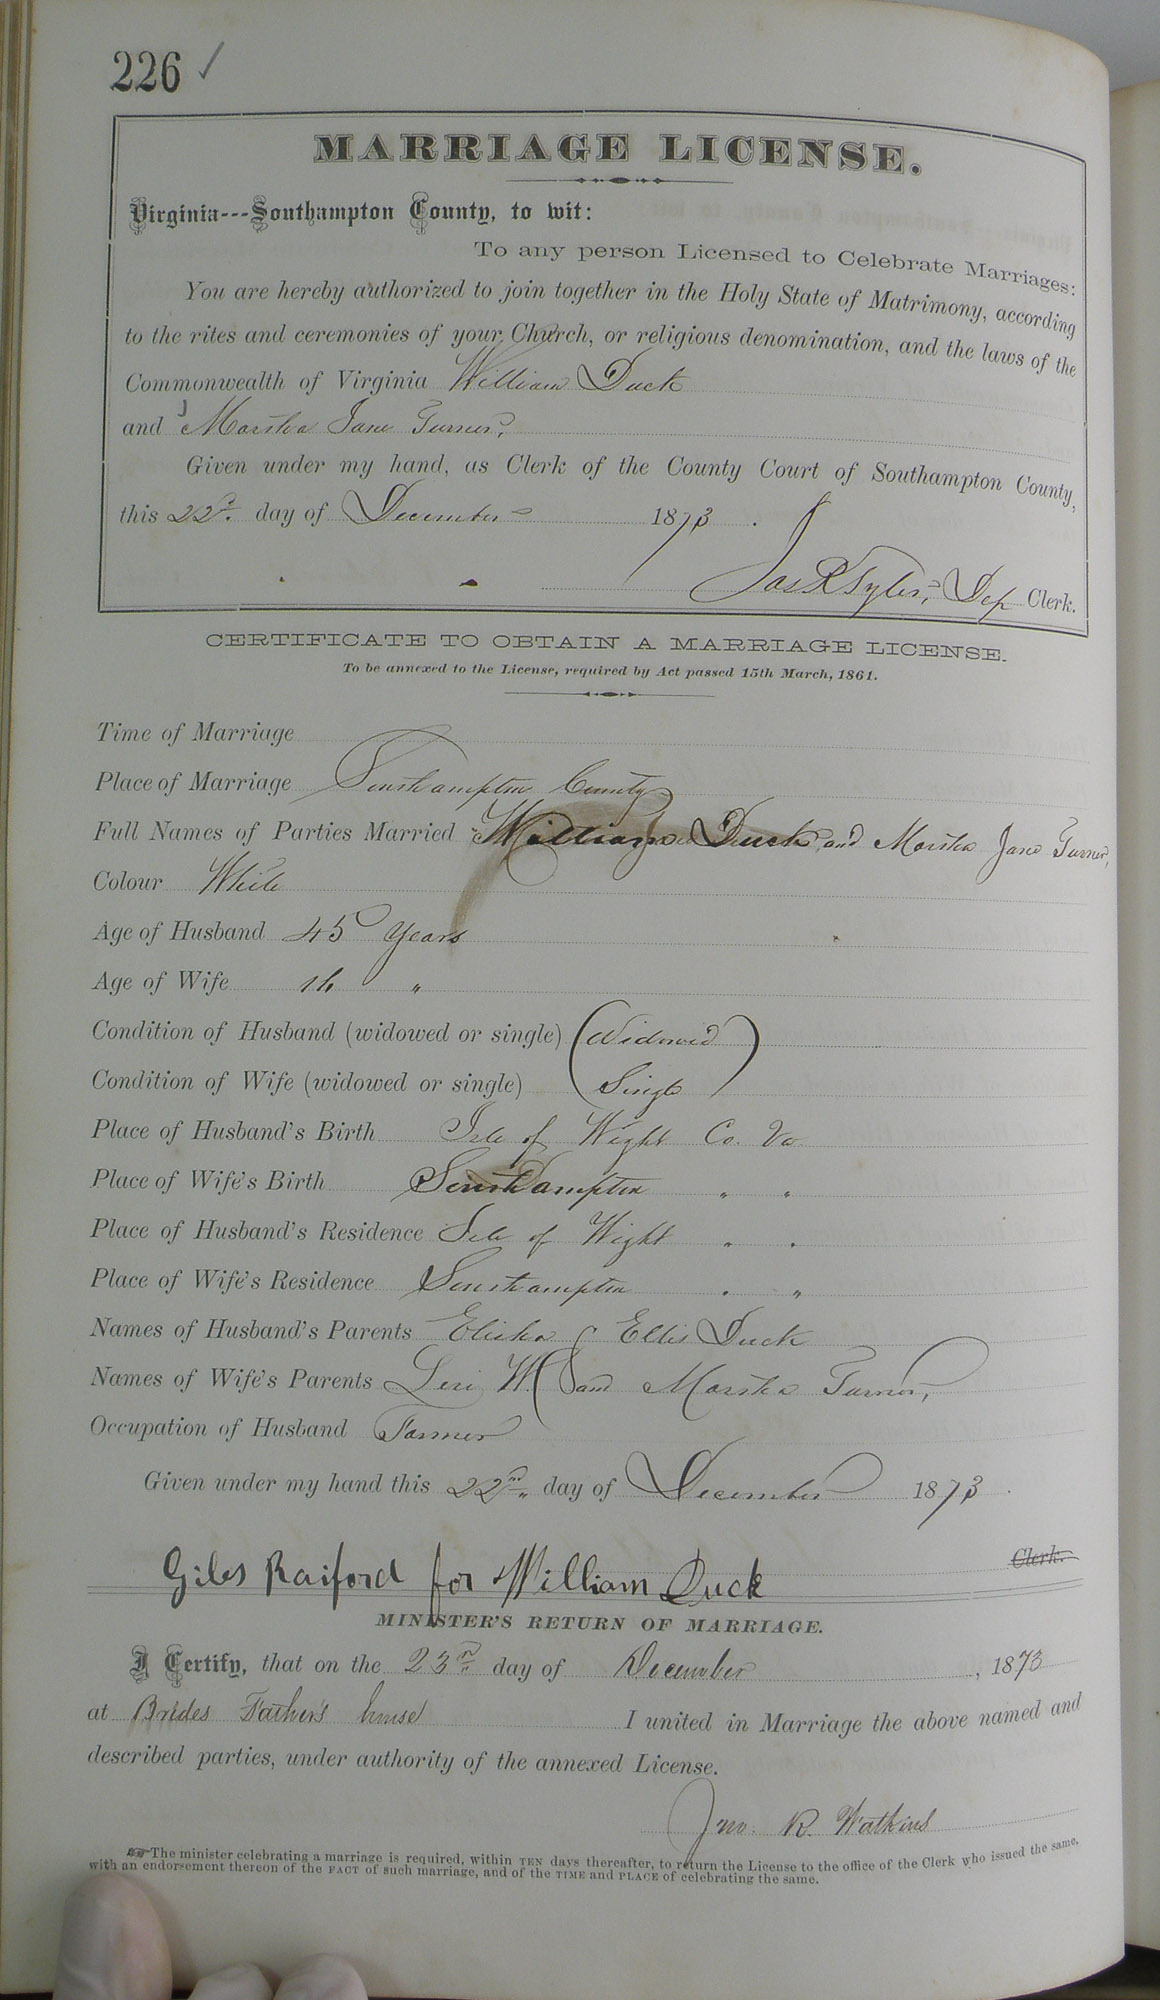 226 ✓
MARRIAGE LICENSE.
Virginia---Southampton County, to wit:
To any person Licensed to Celebrate Marriages:
You are hereby authorized to join together in the Holy State of Matrimony, according
to the rites and ceremonies of your Church, or religious denomination, and the laws of the
Commonwealth of Virginia William Duck
and Martha Jane Turner,
Given under my hand, as Clerk of the County Court of Southampton County,
this 22d. day of December 1873.
Jas R Tyler, Dep Clerk.
CERTIFICATE TO OBTAIN A MARRIAGE LICENSE.
To be annexed to the License, required by Act passed 15th March, 1861.
Time of Marriage
Place of Marriage Southampton County
Full Names of Parties Married William Duck and Martha Jane Turner,
Colour White
Age of Husband 45 Years
Age of Wife 16 "
Condition of Husband (widowed or single) (Widowed)
Condition of Wife (widowed or single) (Single)
Place of Husband's Birth Isle of Wight Co. Va
Place of Wife's Birth Southampton " "
Place of Husband's Residence Isle of Wight " "
Place of Wife's Residence Southampton " "
Names of Husband's Parents Elisha & Ellis Duck
Names of Wife's Parents Levi W. and Martha Turner,
Occupation of Husband Farmer
Given under my hand this 22nd. day of December 1873.
Giles Raiford for William Duck Clerk.
MINISTER'S RETURN OF MARRIAGE.
I Certify, that on the 23rd day of December, 1873
at Brides Father's house I united in Marriage the above named and
described parties, under authority of the annexed License.
Jno. R. Watkins
☞The minister celebrating a marriage is required, within TEN days thereafter, to return the License to the office of the Clerk who issued the same,
with an endorsement thereon of the FACT of such marriage, and of the TIME and PLACE of celebrating the same.